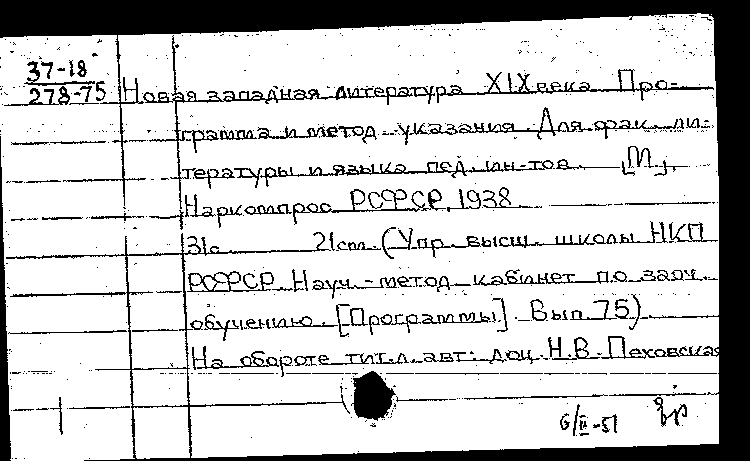 37-18
278-75
Новая западная литература XIX века. Про-
грамма и метод. указания. Для фак. ли-
тературы и языка пед. ин-тов. [М.],
Наркомпрос РСФСР, 1938.
31с. 21см. (Упр. высш. школы НКП
РСФСР. Науч.-метод. кабинет по заоч.
обучению. [Программы]. Вып. 75).
На обороте тит. л. авт: доц. Н.В. Пеховская
6/II-51